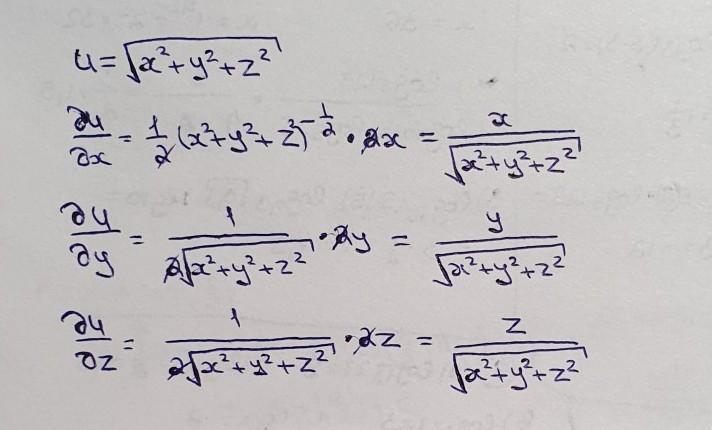 u = √(x² + y² + z²)
∂u/∂x = 1/2 (x² + y² + z²)^(-1/2) · 2x = x/√(x² + y² + z²)
∂u/∂y = 1/(2√(x² + y² + z²)) · 2y = y/√(x² + y² + z²)
∂u/∂z = 1/(2√(x² + y² + z²)) · 2z = z/√(x² + y² + z²)